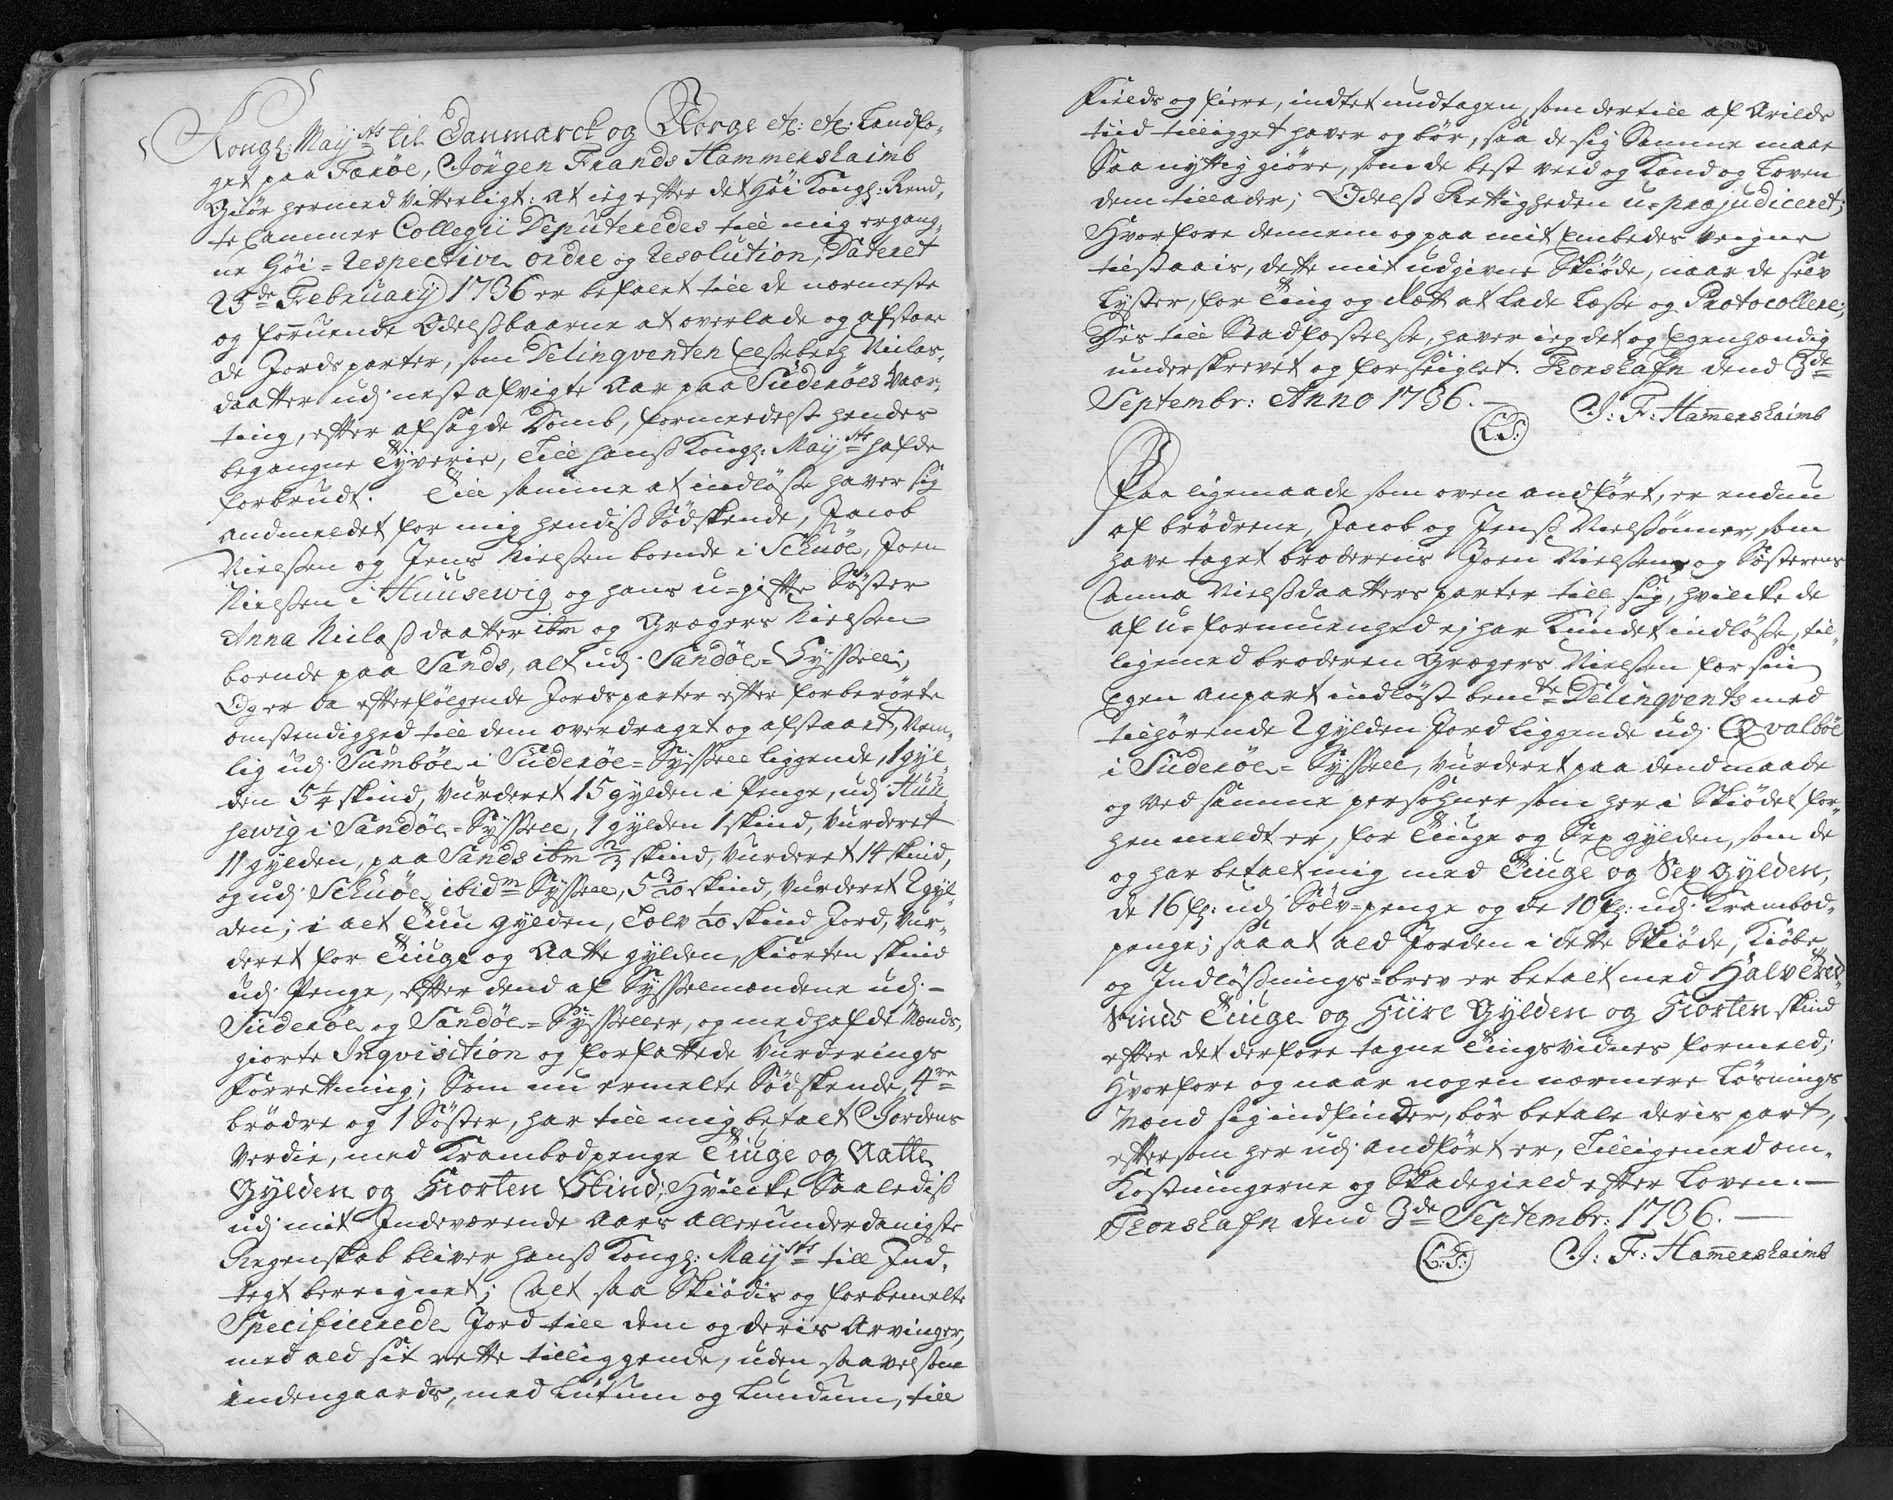 Kongl: May:ts til Danmarck og Norge etc: etc: Landfo-
get paa Færøe, Jörgen Frands Hammershaimb
Giör hermed Vitterligt: at ieg efter det Höi Kongl: Rend,
te Cammer Collegii Deputeredes till mig ergang,
ne Höi=respective ordre og resolution, Dateret
25de February 1736 er befalet till de nærmeste
og formuende Odelsbaarne at overlade og afstaae
de Jordsparter, som Delinqventen Elsebeth Niclas,
daatter udj nest afvigte Aar paa Süderöes Vaar,
ting, efter afsagde Domb, formedelst hendes
begangne Tÿverie, Till hanß Kongl: May:ts hafde
forbrudt. Till samme at indlösse haver sig
andmeldet for mig hendis Södskende, Jacob
Nielsen og Jens Nielsen boende i Schuöe, Joen
Nielsen i Huusewig og hans u=gifte Söster
Anna Niclaßdaatter ibm og Gregers Nielsen
boende paa Sands, alt udj Sandöe=Sÿssell;
Og er da efterfölgende Jordsparter efter forberörte
omstendighed till dem overdraget og afstaaet, Nem,
lig udj Sumböe i Süderöe=Sÿssell liggende, 1 gÿl,
den 5¼ skind, Vurderet 15 gÿlden i Penge, udj Huu,
sewig i Sandöe=Sÿssell, 1 gÿlden 1 skind, Vurderet
11 gÿlden, paa Sands ibm ⅔ skind, Vurderet 14 skind,
og udj Schuöe ibidm Sÿssell, 5 3/20 skind, Vurderet 2 gÿl,
den; i alt Tuu gÿlden, Tolv 1/20 skind Jord, Vur,
deret for Tiuge og Aatte gÿlden, Fiorten skind
udj Penge, efter dend af Sÿsselmændene udj
Süderöe og Sandöe=Sÿsseller, og medhafde Mænds,
giorte Inqvisition og forfattede Vurderings
Forretning; Som nu ermelte Södskende, 4re
brödre og 1 Söster, har till mig betalt Jordens
Verdie, med Krambodpenge Tiuge og Aatte
Gÿlden og Fiorten Skind; Hvilcke Saaledis
udj mit Indeværende Aars allerunderdanigste
Regenskab bliver hanß Kongl: May:ts till Ind,
tegt beregnet; Alt saa Skiödis og forbemelte
Specificerede Jord till dem og deris Arvinger,
med ald sit rette tilliggende, uden saavelsom
indengaards, med Lutum og Lundum, till
Fields og Fiere, indtet undtagen, som dertill af Arilds
tiid tilligget haver og bör, saa de sig Samme maae
Saa nÿttig giöre, som de best veed og Kand og Loven
dem tillader; Odelß Rettigheden u=præjudiceret;
Hvorfore dennem og paa mit Embedes Veigne
tilstaais, dette mit udgivne Skiöde, naar de selv
Lyster, for Ting og Rætt at lade Læse og Protocollere;
Des till Stadfæstelse, haver ieg det og Egenhændig
underskrevet og forseiglet. Thorshafn dend 3de
Septembr: Anno 1736.
(L.S.) J: F: Hamershaimb
Paa ligemaade som oven andfört, er endnu
af brödrene, Jacob og Jenß Nielssönner, som
have taget broderens Joen Nielsens og Sösterens
Anna Nielßdaatters parter till sig, hvilcke de
af u=formuenhed ej har Kundet indlösse, til,
ligemed broderen Gregers Nielsen for sin
Egen anpart indlöst bemte Delinqvents med
tilhörende 2 gÿlden Jord liggende udj Qvalböe
i Süderöe=Sÿssell, Vurderet paa dend maade
og ved samme persohner som her i Skiödet for,
hen meldt er, for Tiuge og Sex gÿlden, som de
og har betalt mig med Tiuge og Sex gÿlden,
de 16 fl: udj Sölv=penge og de 10 fl: udj Krambod,
penge; saa at ald Jorden i dette Skiöde, Kiöbe
og Indlösnings=brev er betalt med Halvtred,
sinds Tiuge og Fiire Gÿlden og Fiorten skind
efter det derfore tagne Tingsvidnes formeld;
Hvorfore og naar nogen nærmere Lösnings
Mænd sig indfinder, bör betale deris part,
eftersom her udj andfört er, Tilligemed om,
Kostningerne og Skadegield efter Loven.
Thorshafn dend 3de Septembr: 1736.
(L:S:) J: F: Hamershaimb